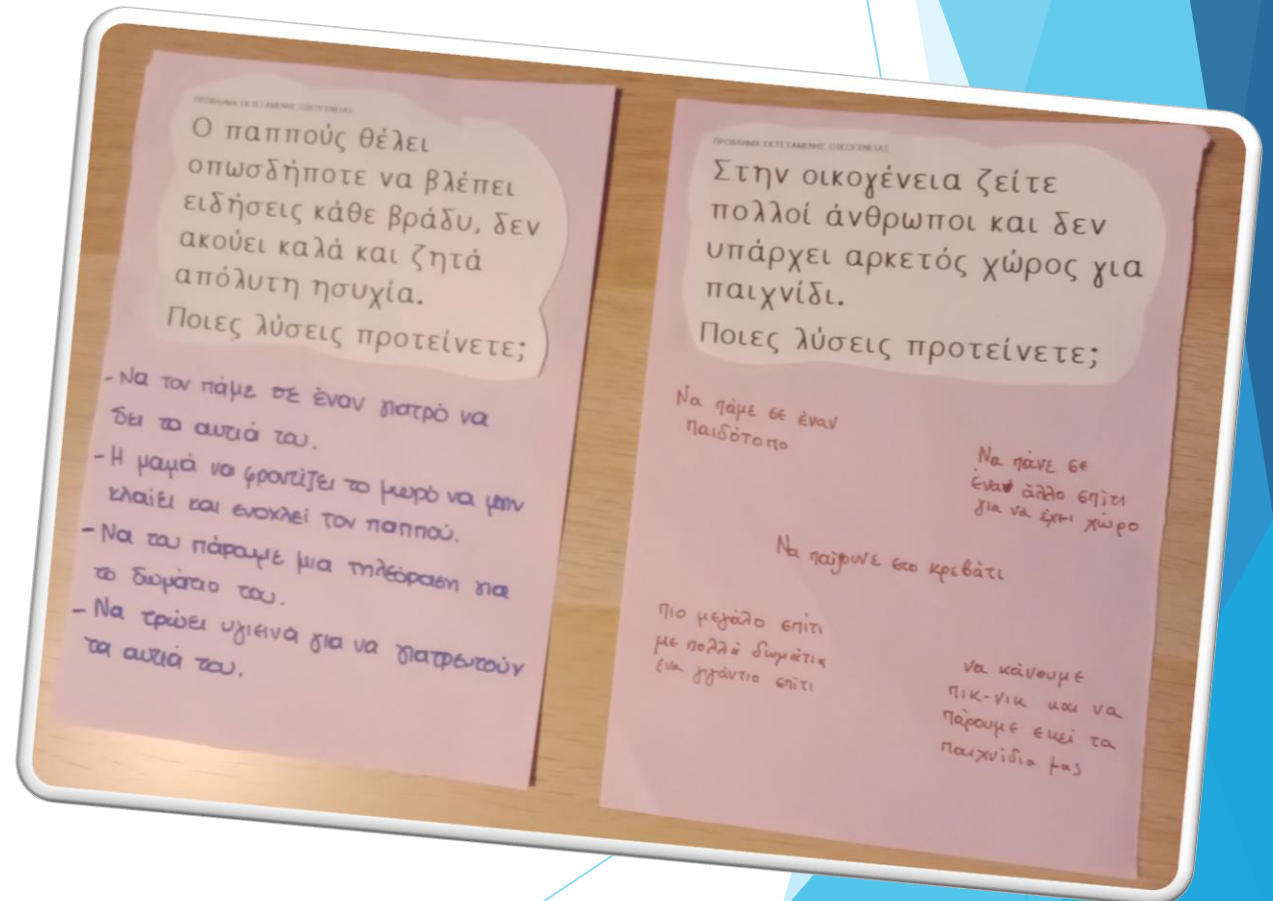 ΠΡΟΒΛΗΜΑ ΕΚΤΕΤΑΜΕΝΗΣ ΟΙΚΟΓΕΝΕΙΑΣ
Ο παππούς θέλει
οπωσδήποτε να βλέπει
ειδήσεις κάθε βράδυ, δεν
ακούει καλά και ζητά
απόλυτη ησυχία.
Ποιες λύσεις προτείνετε;
- Να τον πάμε σε έναν γιατρό να
δει τα αυτιά του.
- Η μαμά να φροντίζει το μωρό να μην
κλαίει και ενοχλεί τον παππού.
- Να του πάρουμε μια τηλεόραση για
το δωμάτιο του.
- Να τρώει υγιεινά για να γιατρευτούν
τα αυτιά του.
ΠΡΟΒΛΗΜΑ ΕΚΤΕΤΑΜΕΝΗΣ ΟΙΚΟΓΕΝΕΙΑΣ
Στην οικογένεια ζείτε
πολλοί άνθρωποι και δεν
υπάρχει αρκετός χώρος για
παιχνίδι.
Ποιες λύσεις προτείνετε;
Να πάμε σε έναν
παιδότοπο
Να πάνε σε
ένα άλλο σπίτι
για να έχει χώρο
Να παίζουνε στο κρεβάτι
πιο μεγάλο σπίτι
με πολλά δωμάτια
ένα γιγάντιο σπίτι
να κάνουμε
πικ-νικ και να
πάρουμε εκεί τα
παιχνίδια μας